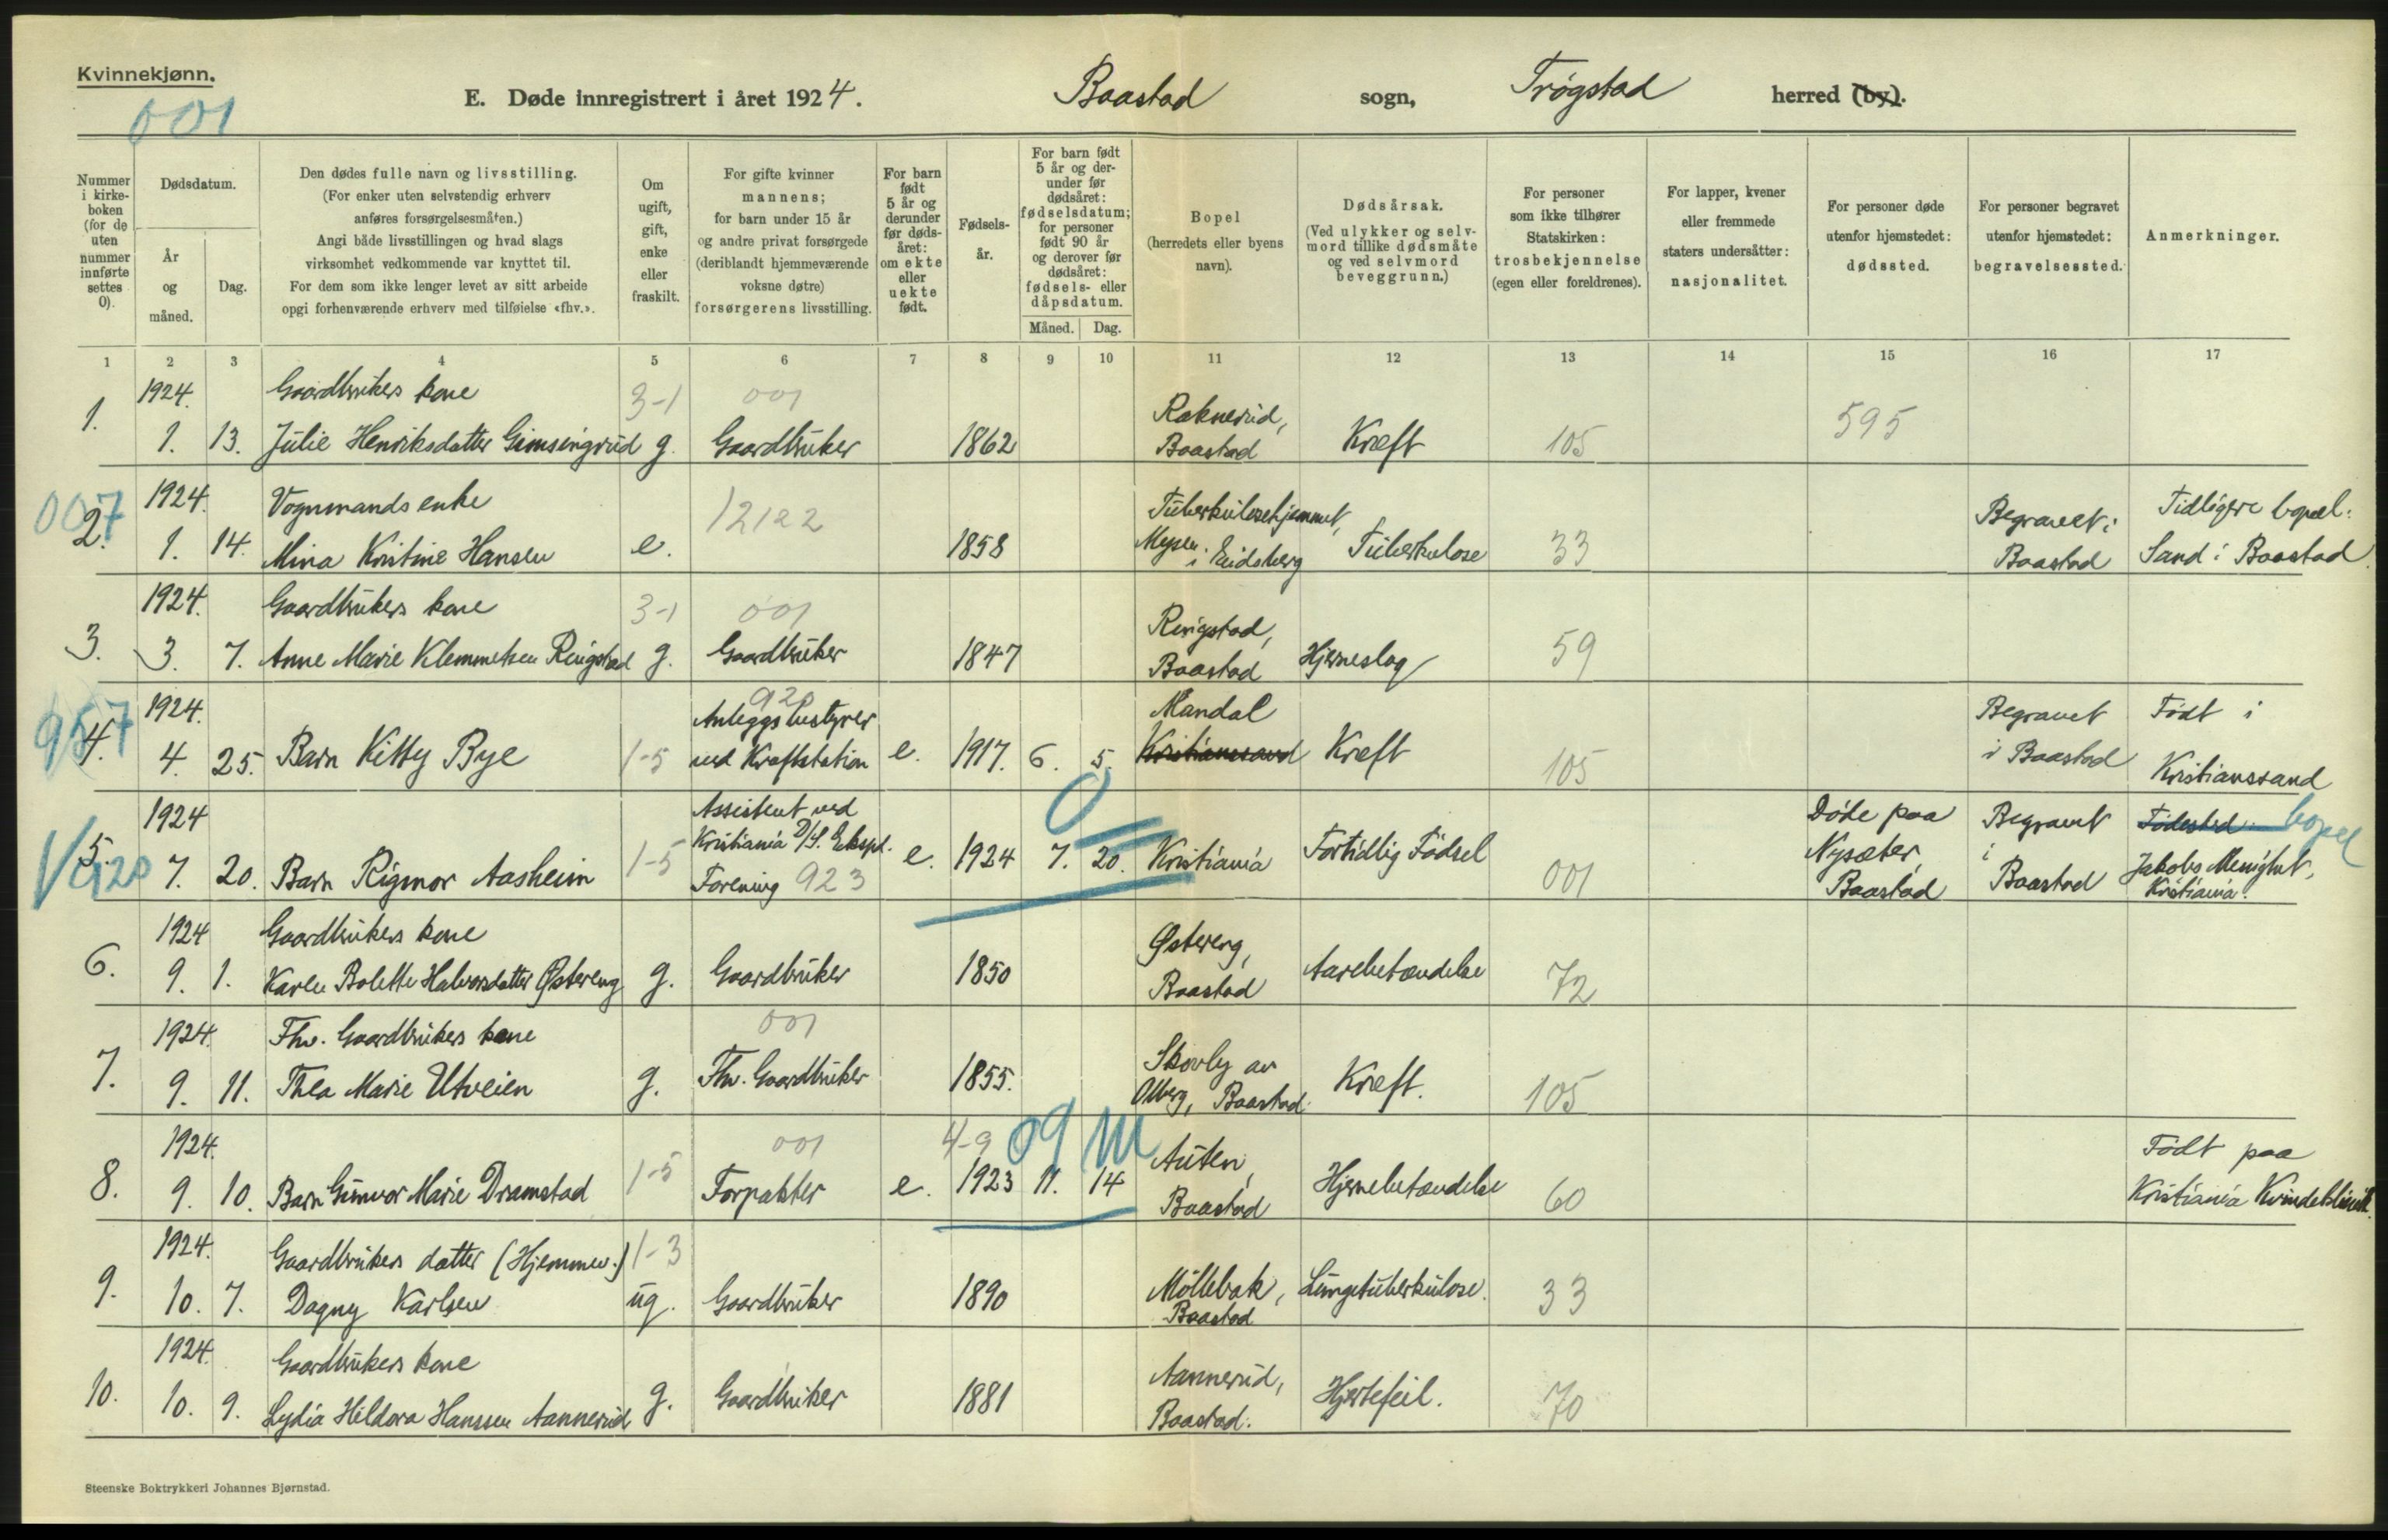 Kvinnekjønn.
001
E. Døde innregistrert i året 1924.
Baastad sogn, Trøgstad herred (by).
Nummer i kirke-boken (for de uten nummer innførte settes 0).
Dødsdatum.
År og måned.
Dag.
Den dødes fulle navn og livsstilling.
(For enker uten selvstendig erhverv anføres forsørgelsesmåten.)
Angi både livsstillingen og hvad slags virksomhet vedkommende var knyttet til.
For dem som ikke lenger levet av sitt arbeide opgi forhenværende erhverv med tilføielse «fhv.».
Om ugift, gift, enke eller fraskilt.
For gifte kvinner mannens; for barn under 15 år og andre privat forsørgede (deriblandt hjemmeværende voksne døtre) forsørgerens livsstilling.
For barn født 5 år og derunder før døds-året: om ekte eller uekte født.
Fødsels-år.
For barn født 5 år og der-under før dødsåret: fødselsdatum; for personer født 90 år og derover før dødsåret: fødsels- eller dåpsdatum.
Måned. Dag.
Bopel (herredets eller byens navn).
Dødsårsak.
(Ved ulykker og selv-mord tillike dødsmåte og ved selvmord beveggrunn.)
For personer som ikke tilhører Statskirken: trosbekjennelse (egen eller foreldrenes).
For lapper, kvener eller fremmede staters undersåtter: nasjonalitet.
For personer døde utenfor hjemstedet: dødssted.
For personer begravet utenfor hjemstedet: begravelsessted.
Anmerkninger.
1 2 3 4 5 6 7 8 9 10 11 12 13 14 15 16 17
1924. Gaardbrukers kone 3-1 001 Raknerud, 595
1. 1. 13. Julie Henriksdatter Gimsingrud g. Gaardbruker 1862 Baastad Kreft 105
007 1924. Vognmands enke 12122 Tuberkulosehjemmet, Begravet i Tidligere bopel:
2. 1. 14. Mina Kristine Hansen e. 1858 Mysen i Eidsberg Tuberkulose 33 Baastad Sand i Baastad.
1924. Gaardbrukers kone 3-1 001 Ringstad,
3. 3. 7. Anne Marie Klemmetsen Ringstad g. Gaardbruker 1847 Baastad Hjerneslag 59
957 1924. 920 Anleggsbestyrer Mandal Begravet Født i
4. 4. 25. Barn Kitty Bye 1-5 ved Kraftstation e. 1917. 6. 5. Kristianssand Kreft 105 i Baastad Kristianssand
1924 Assistent ved 0 Døde paa Begravet Fødested bopel
5. 7. 20. Barn Rigmor Aasheim 1-5 Kristiania D/S. Ekspd. Forening 923 e. 1924 7. 20. Kristiania Fortidlig Fødsel 001 Nysæter, Baastad i Baastad Jakobs Menighet, Kristiania.
V 920
1924 Gaardbrukers kone Østereng,
6. 9. 1. Karen Bolette Halvorsdatter Østereng g. Gaardbruker 1850 Baastad Aarebetændelse 72
1924. Fhv. Gaardbrukers kone 001 Skovly av
7. 9. 11. Thea Marie Utveien g. Fhv. Gaardbruker 1855. Olberg, Baastad. Kreft. 105
1924. 001 4-9 09 m Auten, Født paa
8. 9. 10. Barn Gunvor Marie Dramstad 1-5 Forpakter e. 1923 11. 14 Baastad Hjernebetændelse 60 Kristiania Kvindeklinik.
1924. Gaardbrukers datter (Hjemmev.) 1-3
9. 10. 7. Dagny Karlsen ug. Gaardbruker 1890 Møllebak, Baastad Lungetuberkulose. 33
1924. Gaardbrukers kone Aannerud,
10. 10. 9. Lydia Hildora Hanssen Aannerud g. Gaardbruker 1881 Baastad. Hjertefeil. 70
Steenske Boktrykkeri Johannes Bjørnstad.